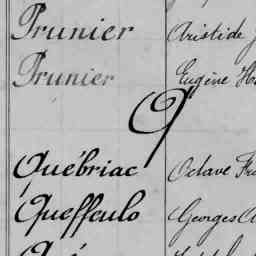 Prunier Aristide
Prunier Eugène
Q
Québriac Octave
Queffeulo Georges